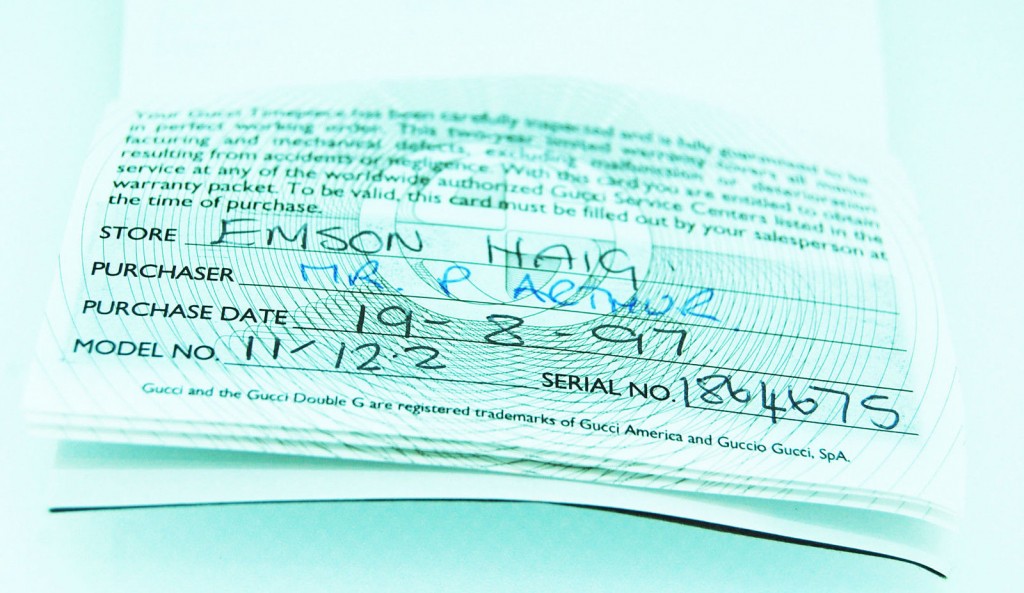 Your Gucci Timepiece has been carefully inspected and is fully guaranteed to be
in perfect working order. This two-year limited warranty covers all manu-
facturing and mechanical defects, excluding malfunction or deterioration
resulting from accidents or negligence. With this card you are entitled to obtain
service at any of the worldwide authorized Gucci Service Centers listed in the
warranty packet. To be valid, this card must be filled out by your salesperson at
the time of purchase.
STORE EMSON HAIG
PURCHASER MR. P ARTHUR
PURCHASE DATE 19-8-97
MODEL NO. 11/12.2 SERIAL NO. 1864675
Gucci and the Gucci Double G are registered trademarks of Gucci America and Guccio Gucci, SpA.